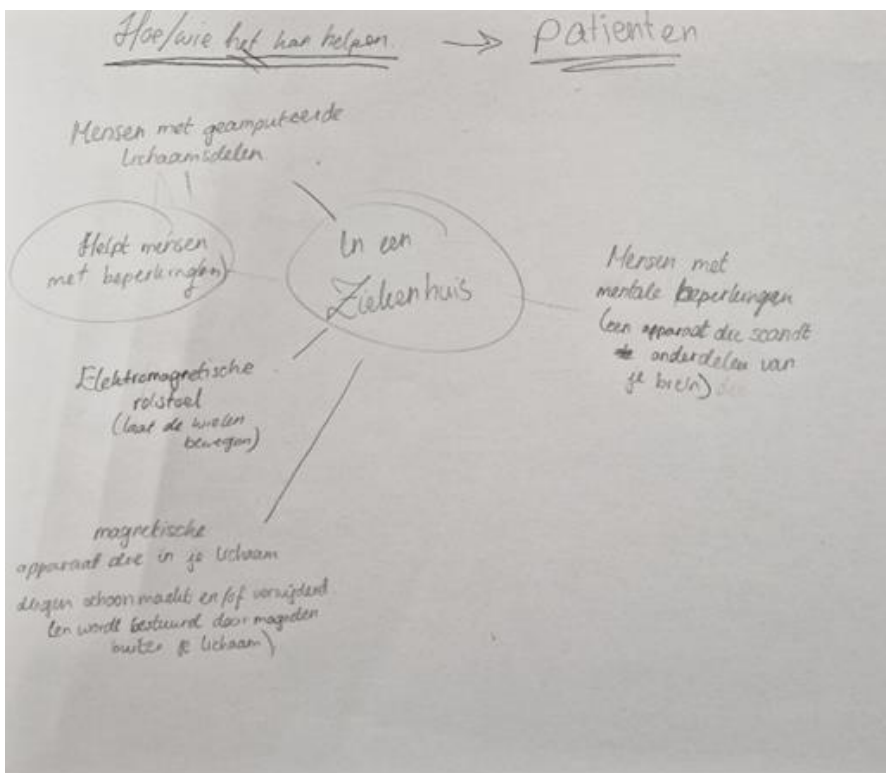 Hoe/wie het kan helpen. → Patienten
Mensen met geamputeerde
lichaamsdelen
Helpt mensen
met beperking(en)
In een
Ziekenhuis
Mensen met
mentale beperkingen
(een apparaat die scandt
onderdelen van
je brein)
Elektromagnetische
rolstoel
(laat de wielen
bewegen)
magnetische
apparaat die in je lichaam
dingen schoonmaakt en/of verwijderd
(en wordt bestuurd door magneten
buiten je lichaam)